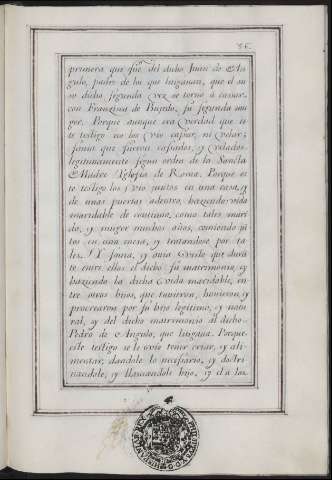 36.
primera que fue del dicho Juan de An
gulo, padre de los que litigauan, que el su
so dicho segunda vez se torno a casar
con Francisca de Bujedo, su segunda mu
ger. Porque aunque era verdad que es
te testigo no los vio casar, ni velar;
sauia que fueron casados, y velados
legitimamente segun orden de la Sancta
Madre Iglesia de Roma. Porque es
te testigo los vio juntos en una casa, y
de unas puertas adentro, haziendo vida
maridable de continuo, como tales mari
do, y muger muchos años, comiendo jun
tos en una mesa, y tratandose por ta
les. Y sauia, y auia visto que duran
te entre ellos el dicho su matrimonio, y
haziendo la dicha vida maridable, en
tre otros hijos, que tuuieron, houieron, y
procrearon por su hijo legitimo, y natu
ral, y del dicho matrimonio al dicho
Pedro de Angulo, que litigaua. Porque
este testigo se le vio tener criar, y ali
mentar, dandole lo necesario, y doctri
nandole, y llamandole hijo, y el a los